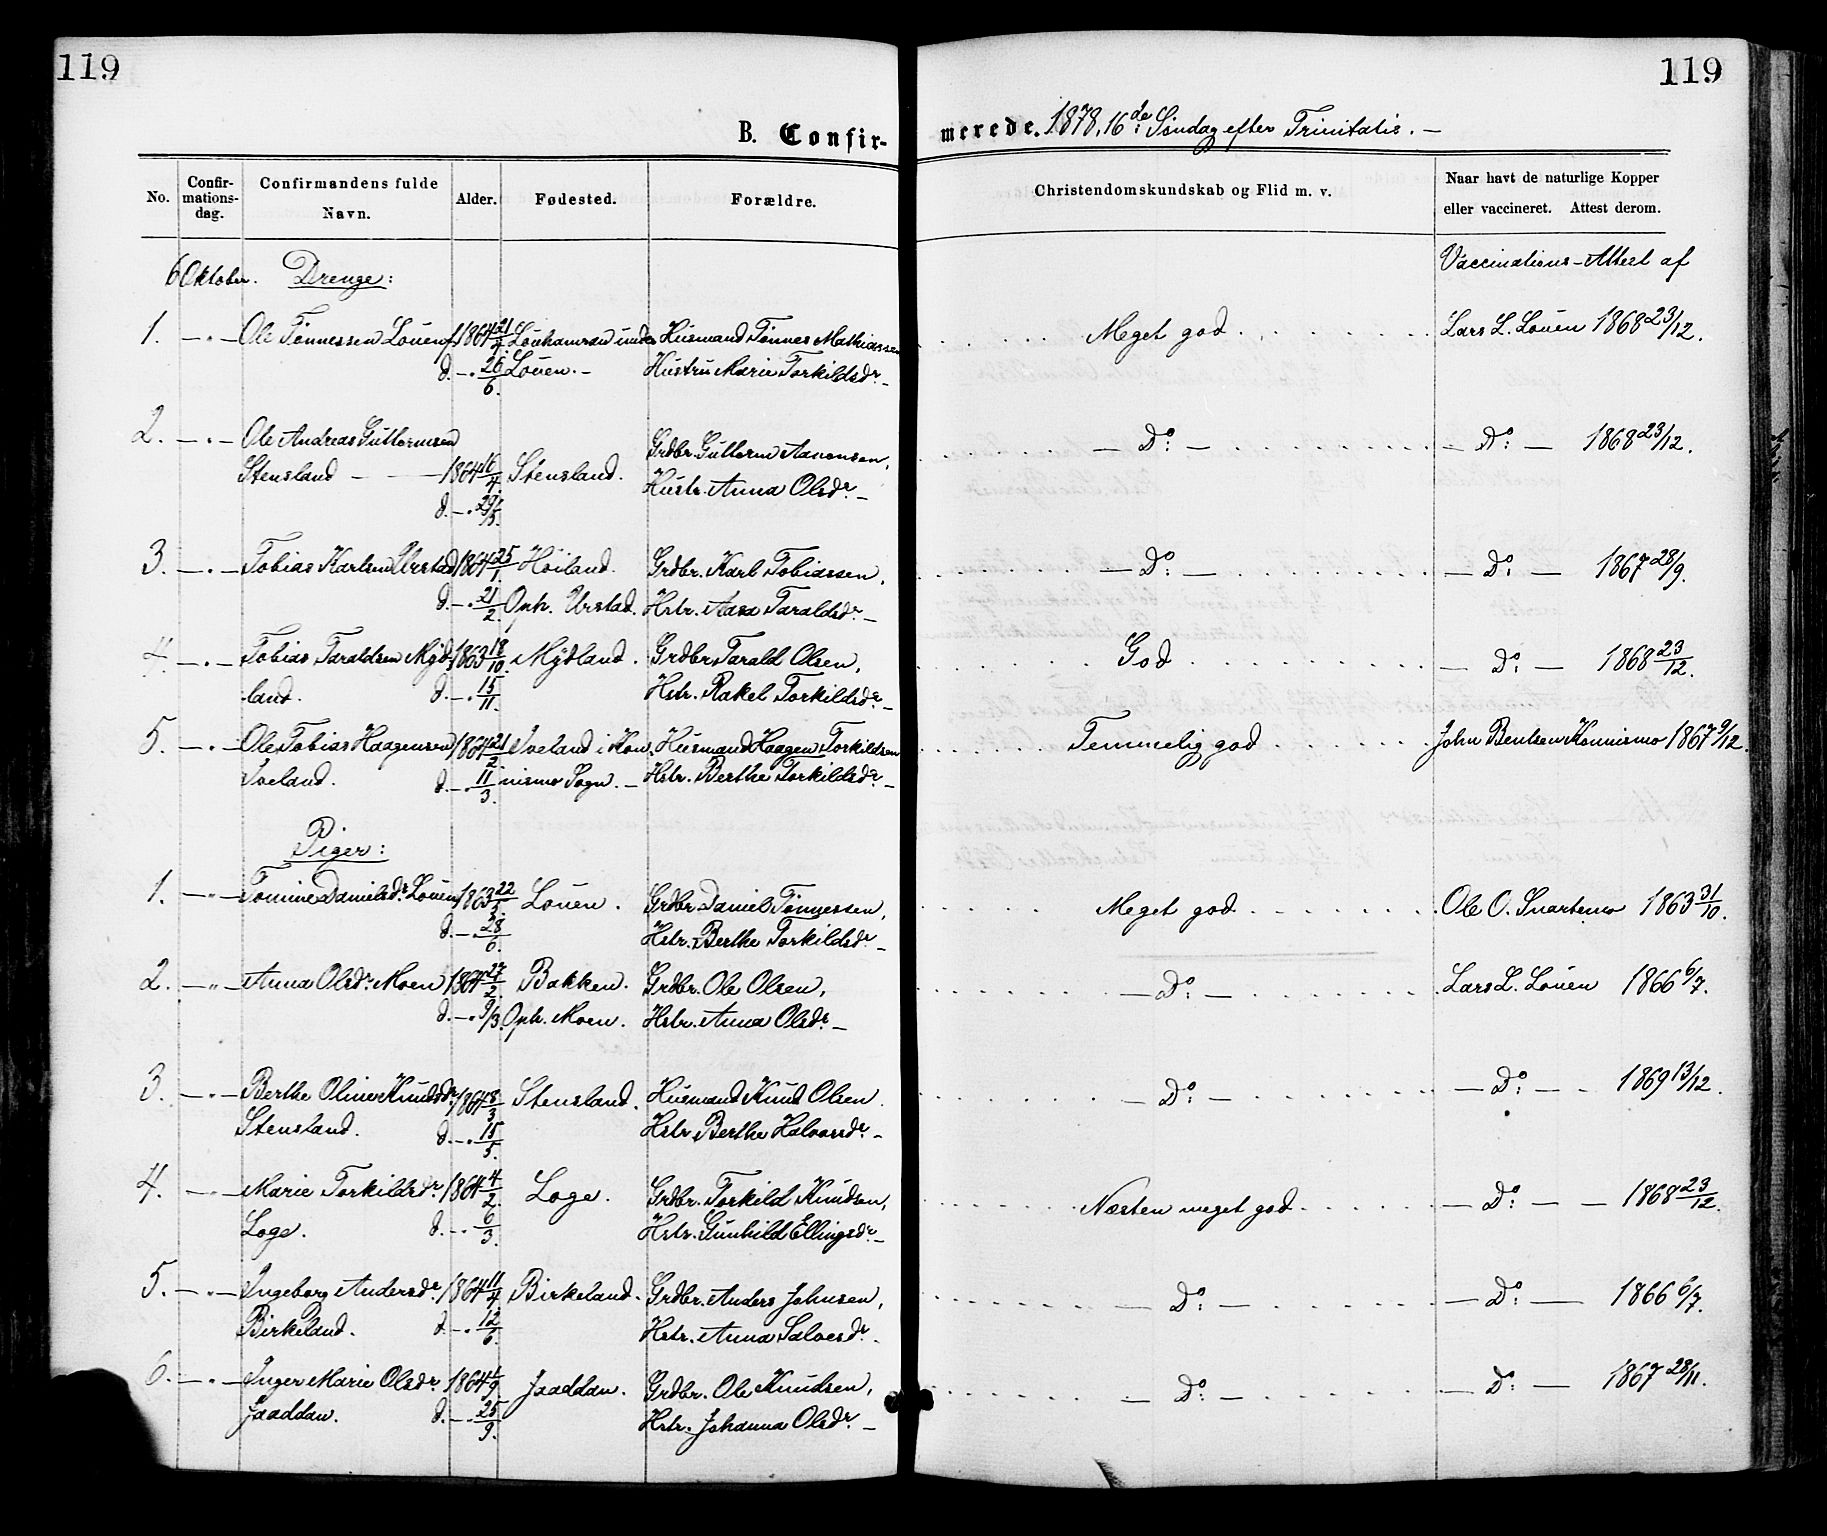 119
119
B. Confir-
merede. 1878, 16de Søndag efter Trinitatis. —
No. Confir-mations-dag. Confirmandens fulde Navn. Alder. Fødested. Forældre. Christendomskundskab og Flid m. v. Naar havt de naturlige Kopper eller vaccineret. Attest derom.
6 Oktober. Drenge: Vaccinations-Attest af
1. — " — Ole Tønnessen Louen f. 1864 21/4. Louhamran under Husmand Tønnes Mathiassen Meget god. Lars L. Louen 1868 23/12.
d. — " 26/6. Louen. — Hustru Marie Torkildsdr. —
2. — " — Ole Andreas Guttormsen Grdbr. Guttorm Aanonsen, — Do: — — Do: — 1868 23/12.
Stensland — — 1864 16/4. Stensland. Hustr. Anna Olsdr. —
d. — " 29/5.
3. — " — Tobias Karlsen Urstad 1864 25/1. Høiland. Grdbr. Karl Tobiassen, — Do: — — Do: — 1867 28/9.
d. — " 21/2. Oph. Urstad. Hstr. Aasa Taraldsdr. —
4. — " — Tobias Taraldsen Myd- 1863 18/10. Mydland. Grdbr Tarald Olsen, God — Do: — 1868 23/12.
land. d. — " 15/11. Hstr. Rakel Torkildsdr. —
5. — " — Ole Tobias Haagensen 1864 21/2. Sveland i Kon- Husmand Haagen Torkildsen Temmelig god John Bentsen Konnismo 1867 9/12.
Sveland. d. — " 11/3. nismo Sogn. — Hstr. Berthe Torkildsdr. —
Piger:
1. — " — Tomine Danielsdr. Louen 1863 22/5. Louen. Grdbr. Daniel Tønnessen, Meget god Ole O. Snartemo 1863 31/10.
d. — " 28/6. Hstr. Berthe Torkildsdr. —
2. — " — Anna Olsdr. Moen 1864 27/2. Bakken. Grdbr. Ole Olsen, — Do: — Lars L. Louen 1866 6/7.
d. — " 9/3. Oph. Moen. Hstr. Anna Olsdr. —
3. — " — Berthe Oline Knudsdr. 1864 8/3. Stensland. Husmand Knud Olsen. — Do: — — Do: — 1869 13/12.
Stensland. d. — " 15/5. Hstr. Berthe Halvorsdr. —
4. — " — Marie Torkildsdr. 1864 4/2. Loge. Grdbr. Torkild Knudsen, Næsten meget god — Do: — — 1868 23/12.
Loge. d. — " 6/3. Hstr. Gunhild Ellingsdr. —
5. — " — Ingeborg Andersdr. 1864 11/4. Birkeland. Grdbr. Anders Johnsen, — Do: — — Do: — 1866 6/7.
Birkeland. d. — " 12/6. Hstr. Anna Salvesdr. —
6. — " — Inger Marie Olsdr. 1864 1/9. Jaaddan. Grdbr. Ole Knudsen, — Do: — — Do: — 1867 28/11.
Jaaddan. d. — " 25/9. Hstr. Johanna Olsdr. —